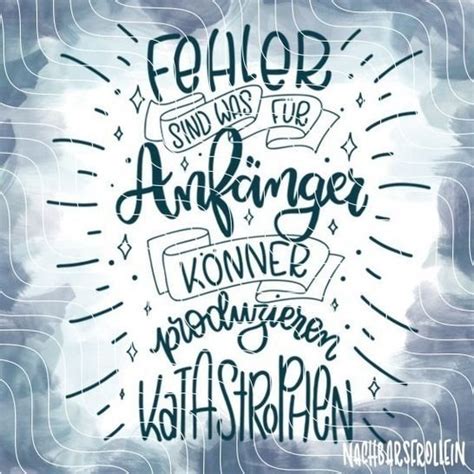 FEHLER
SIND WAS FÜR
Anfänger
KÖNNER
produzieren
KATASTROPHEN
NACHBARSFROLLEIN